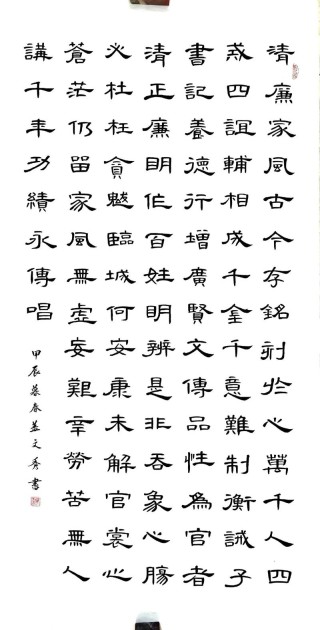 清廉家風古今存銘刻於心萬千人四
戒四誼輔相成千金千意難制衡誡子
書記養德行增廣賢文傳品性為官者
清正廉明作百姓明辨是非吞象心腸
必杜枉貪魃臨城何安康未解官裳心
蒼茫仍留家風無虛妄艱辛勞苦無人
講千年功績永傳唱
甲辰暮春文秀書